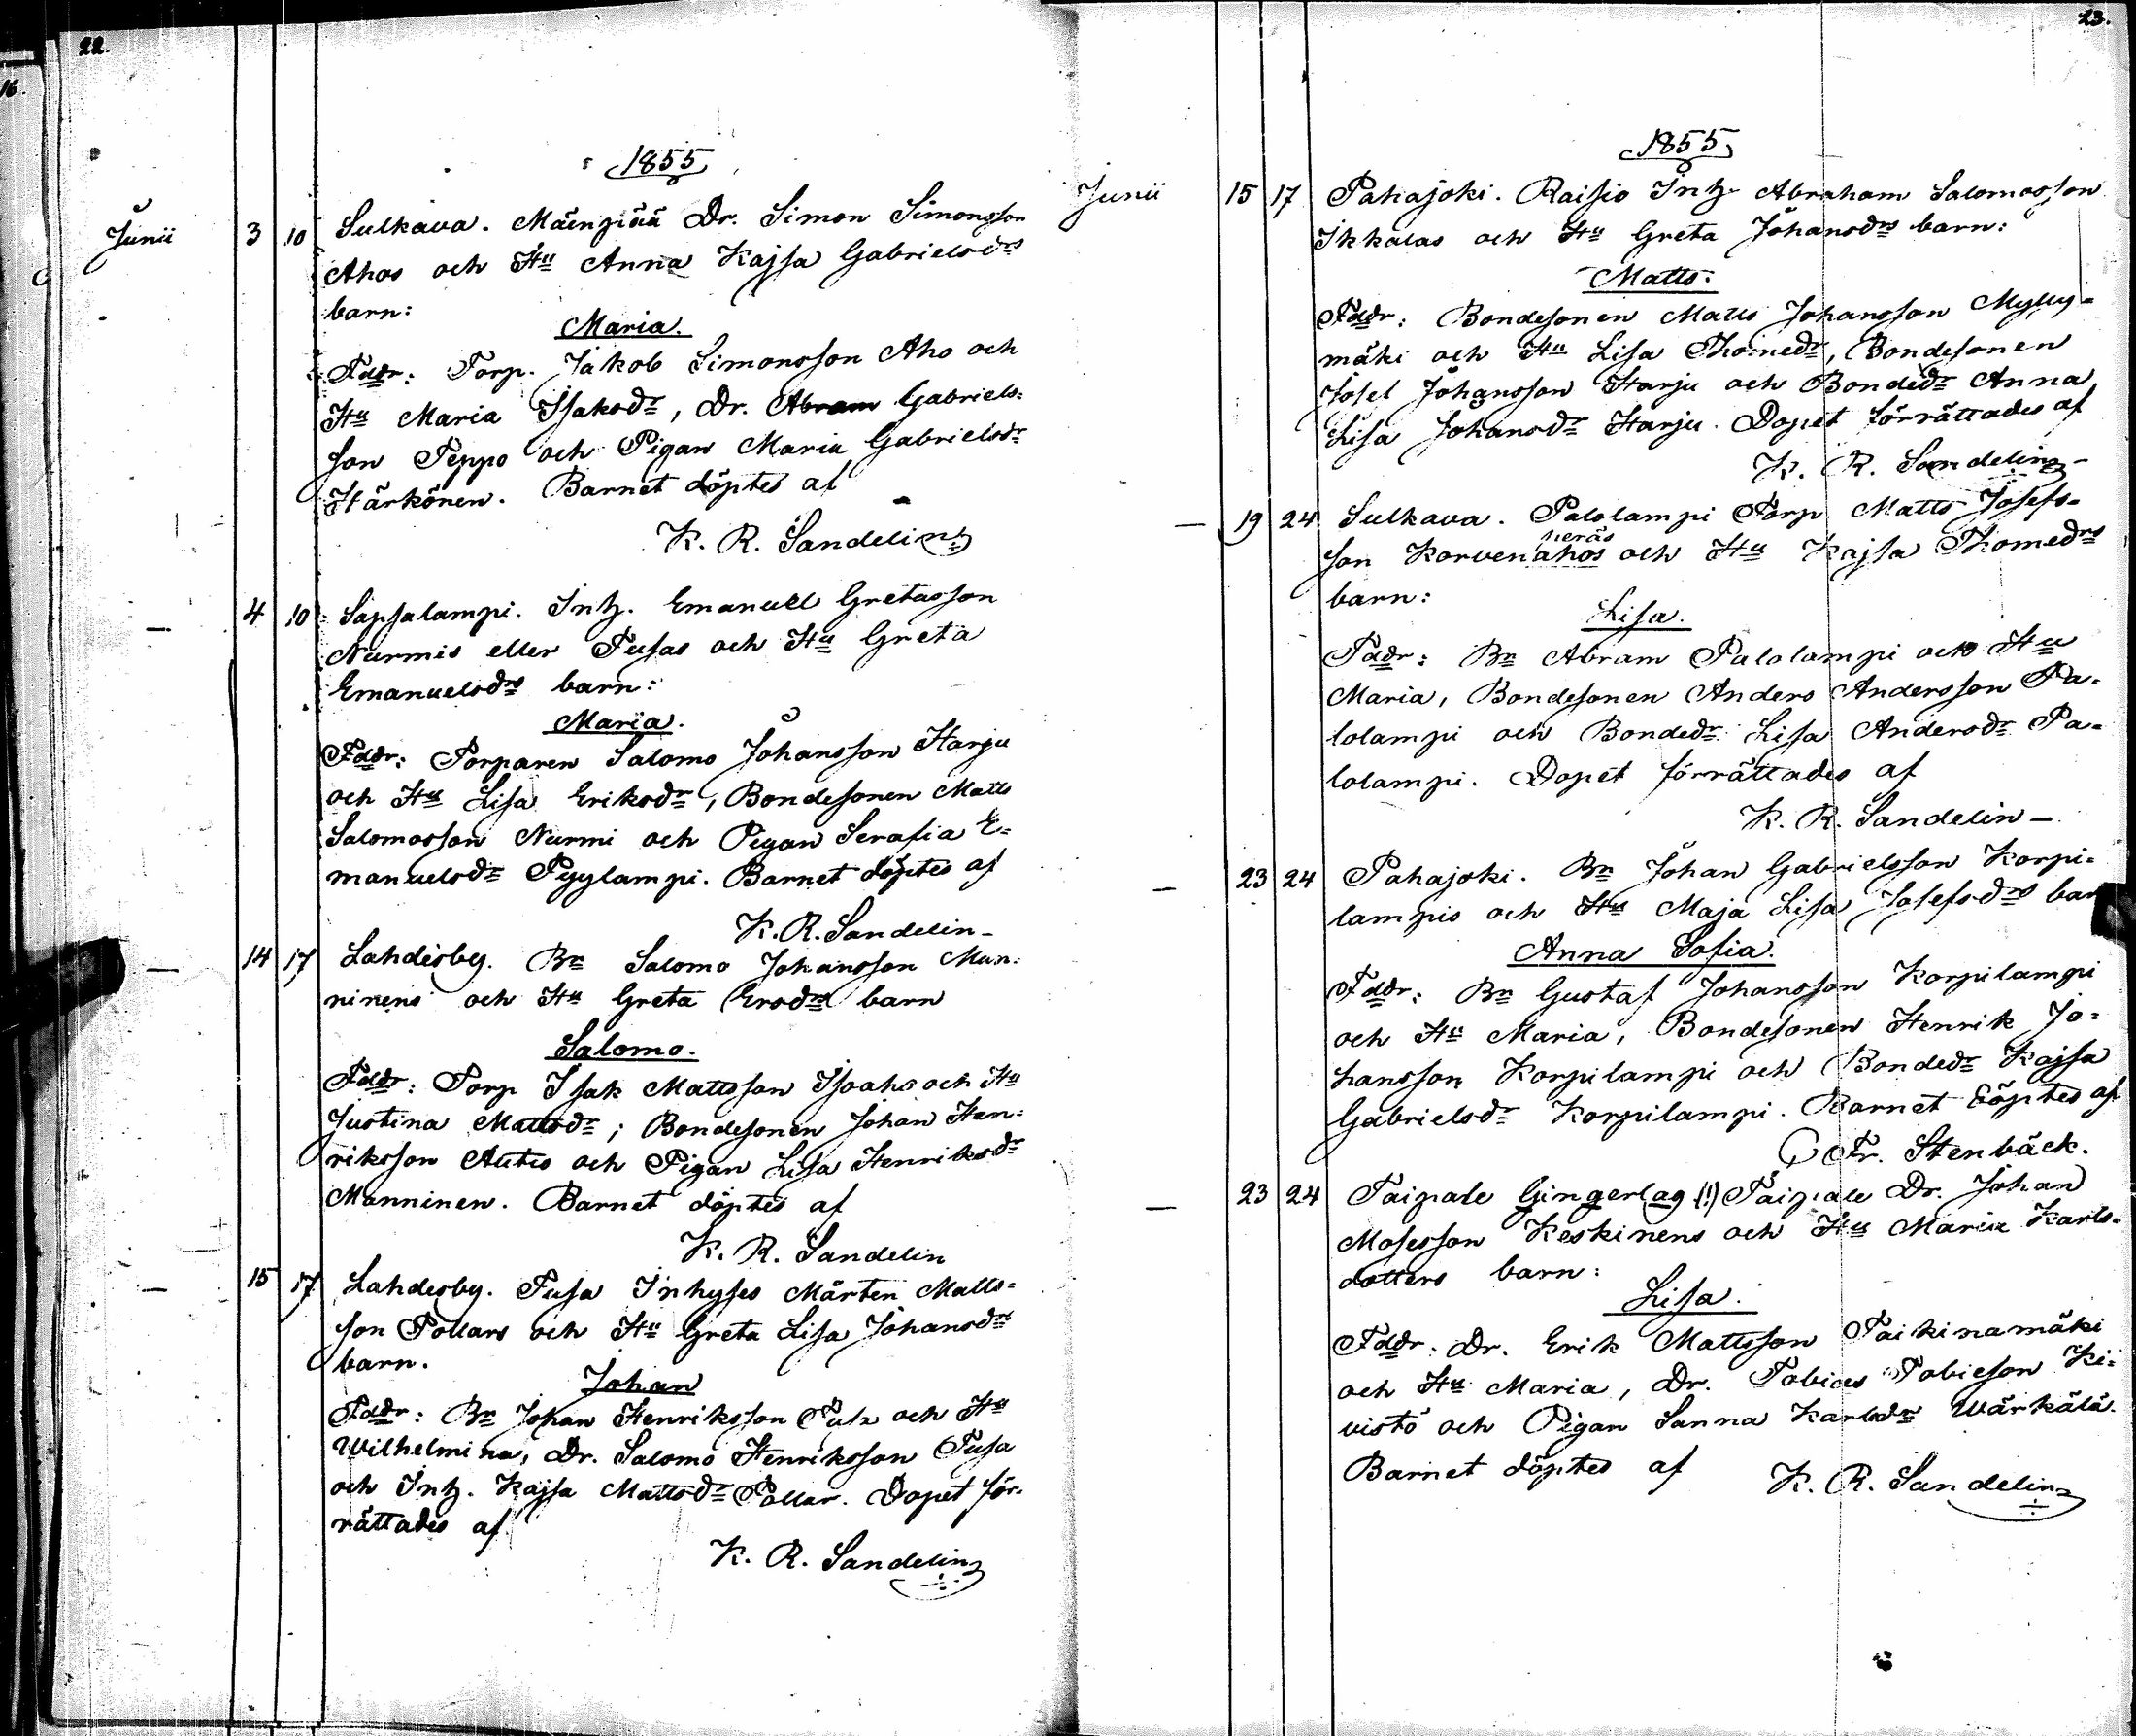 22.
16.
1855
Junii 3 10 Sulkava. Mäenpää Dr. Simon Simonsson
Ahos och Hu Anna Kajsa Gabrielsdrs
barn:
Maria.
Fddr: Torp. Jakob Simonsson Aho och
Hu Maria Isaksdr, Dr. Abram Gabriels-
son Peppo och Pigan Maria Gabrielsdr
Härkönen. Barnet döptes af
K. R. Sandelin
— 4 10 Sapsalampi. Inh. Emanuel Gretasson
Nurmis eller Fusas och Hu Greta
Emanuelsdrs barn:
Maria.
Fddr: Torparen Salomo Johansson Harju
och Hu Lisa Eriksdr, Bondesonen Matts
Salomosson Nurmi och Pigan Serafia E-
manuelsdr Pyylampi. Barnet döptes af
K. R. Sandelin-
— 14 17 Lahdisby. Bn Salomo Johansson Man-
ninens och Hu Greta Ersdrs barn
Salomo.
Fddr: Torp Isak Mattsson Isoaho och Hu
Justina Mattsdr; Bondesonen Johan Hen-
riksson Autio och Pigan Lisa Henriksdr
Manninen. Barnet döptes af
K. R. Sandelin
— 15 17 Lahdisby. Fusa Inhyses Mårten Matts-
son Pollars och Hu Greta Lisa Johansdrs
barn.
Johan
Fddr: Bn Johan Henriksson Fusa och Hu
Wilhelmina, Dr. Salomo Henriksson Fusa
och Inh. Kajsa Mattsdr Pollar. Dopet för-
rättades af
K. R. Sandelin
23.
1855
Junii 15 17 Pahajoki. Raisio Inh Abraham Salomosson
Ikkalas och Hu Greta Johansdrs barn:
Matts.
Fddr: Bondesonen Matts Johansson Mylly-
mäki och Hu Lisa Thomedr, Bondesonen
Josef Johansson Harju och Bondedr Anna
Lisa Johansdr Harju. Dopet förrättades af
K. R. Sandelin-
— 19 24 Sulkava. Palolampi Torp Matts Josefs-
son Korvenahos och Hu Kajsa Thomedrs
barn:
Lisa.
Fddr: Bn Abram Palolampi och Hu
Maria, Bondesonen Anders Andersson Pa-
lolampi och Bondedr Lisa Andersdr Pa-
lolampi. Dopet förrättades af
K. R. Sandelin —
— 23 24 Pahajoki. Bn Johan Gabrielsson Korpi-
lampis och Hu Maja Lisa Josefsdrs bar
Anna Sofia.
Fddr: Bn Gustaf Johansson Korpilampi
och Hu Maria, Bondesonen Henrik Jo-
hansson Korpilampi och Bondedr Kajsa
Gabrielsdr Korpilampi. Barnet döptes af
Fr. Stenbäck.
— 23 24 Taipale Gingerlag (!) Taipale Dr. Johan
Mosesson Keskinens och Hu Maria Karls-
dotters barn:
Lisa.
Fddr. Dr. Erik Mattsson Taikinamäki
och Hu Maria, Dr. Tobias Tobieson Ki-
vistö och Pigan Sanna Karlsdr Wärkälä.
Barnet döptes af K. R. Sandelin